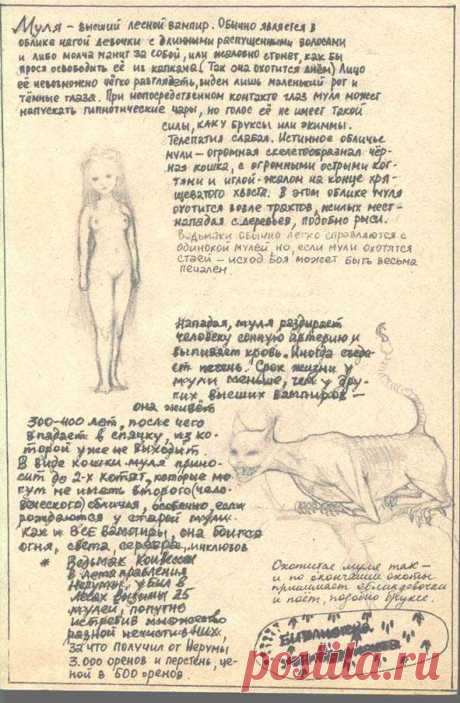 Муля – высший лесной вампир. Обычно является в
облике нагой девочки с длинными распущенными волосами
и либо молча манит за собой, или жалобно стонет, как бы
прося освободить её из капкана. (Так она охотится днём) Лицо
её невозможно чётко разглядеть, виден лишь маленький рот и
тёмные глаза. При непосредственном контакте глаз муля может
напускать гипнотические чары, но голос её не имеет такой
силы, как у бруксы или экиммы.
Телепатия слабая. Истинное обличье
мули – огромная скелетообразная чёр-
ная кошка, с огромными острыми ког-
тями и иглой-жалом на конце хря-
щеватого хвоста. В этом облике муля
охотится возле трактов, жилых мест –
нападая с деревьев, подобно рыси.
Ведьмаки обычно легко справляются с
одинокой мулей но, если мули охотятся
стаей – исход боя может быть весьма
печален.
Нападая, муля раздирает
человеку сонную артерию и
выпивает кровь. Иногда съеда-
ет печень. Срок жизни у
мули меньше, чем у дру-
гих высших вампиров –
она живёт
300-400 лет, после чего
впадает в спячку, из ко-
торой уже не выходит.
В виде кошки муля прино-
сит до 2-х котят, которые мо-
гут не иметь второго (чело-
веческого) обличья, особенно, если
рождаются у старой мули.
Как и ВСЕ вампиры, она боится
огня, света, серебра,
* Ведьмак
в лета правления
Нерумы, убил в
лесах 25
мулей, попутно
истребив множество
разной нечисти в них,
за что получил от Нерумы
3.000 оренов и перстень, це-
ной в 500 оренов.
Охотится муля так –
и по окончании охоты
принимает облик девочки
и поёт, подобно бруксе.
Библиотека
postila.ru